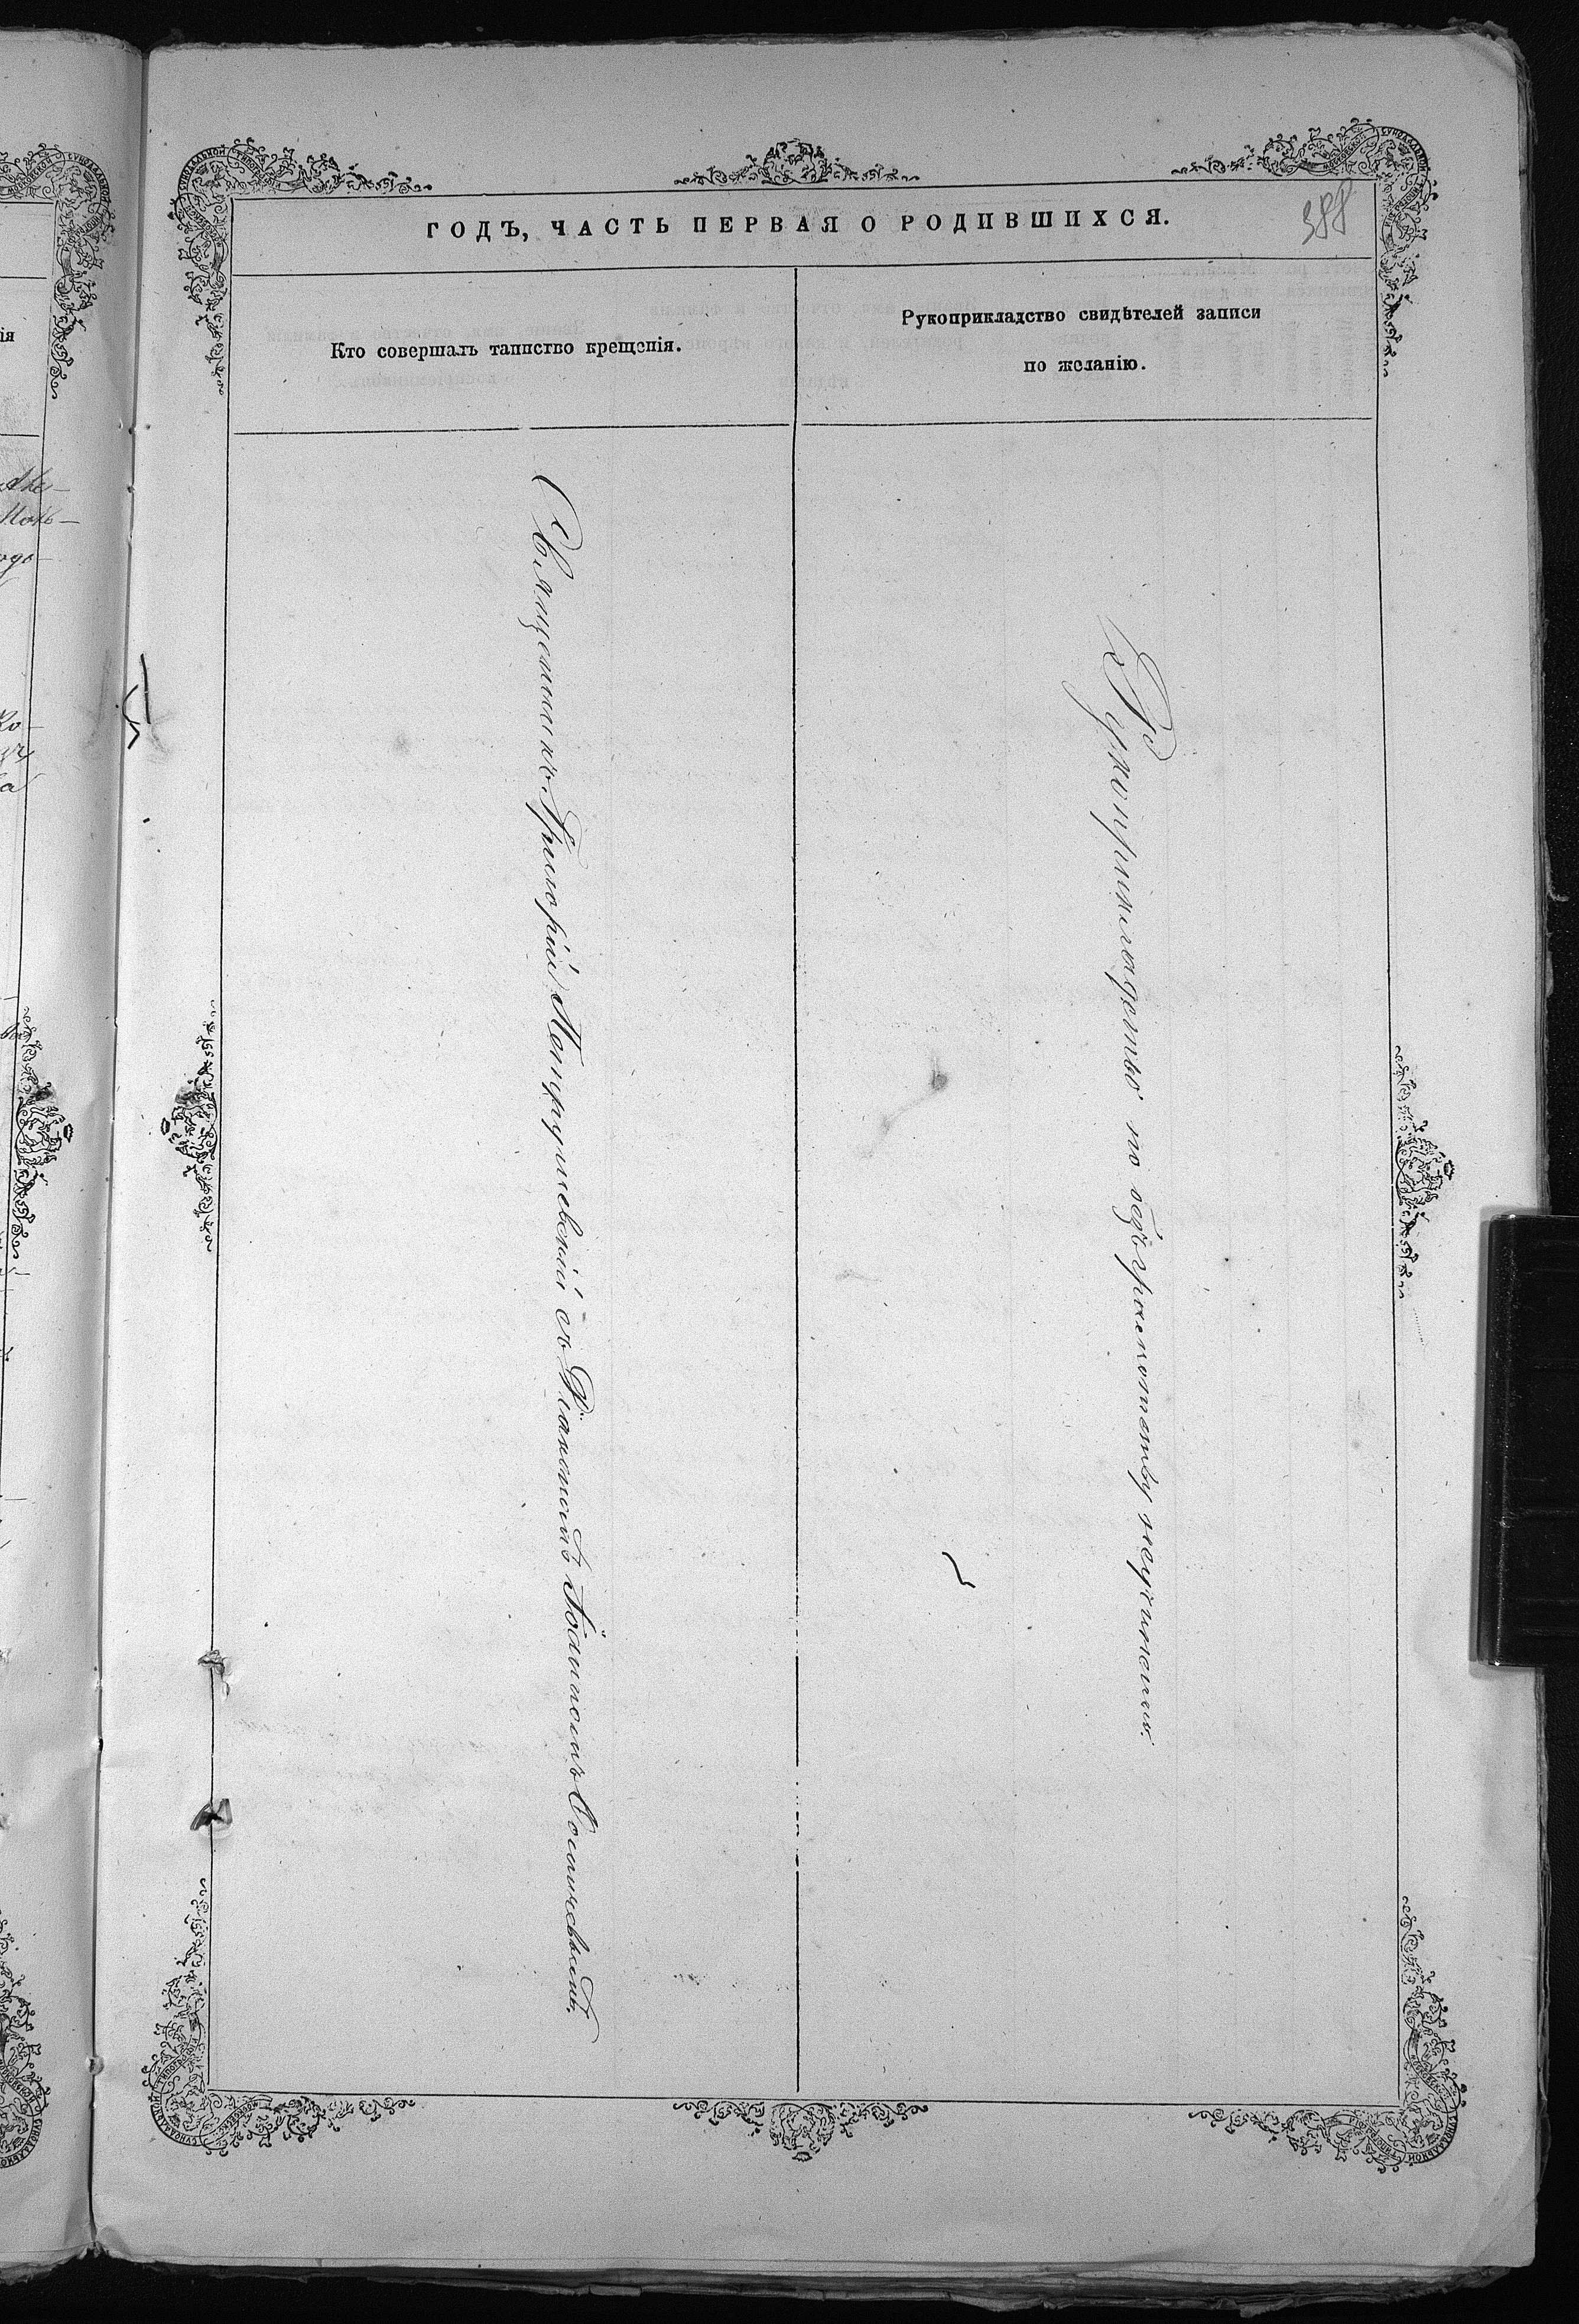 388
ГОДЪ, ЧАСТЬ ПЕРВАЯ О РОДИВШИХСЯ.
Кто совершалъ таинство крещенія.
Рукоприкладство свидѣтелей записи
по желанію.
Священникъ Григорій Петрушевскій съ Діакономъ Іоанномъ
Рукоприкладство по безграмотству неучинено.